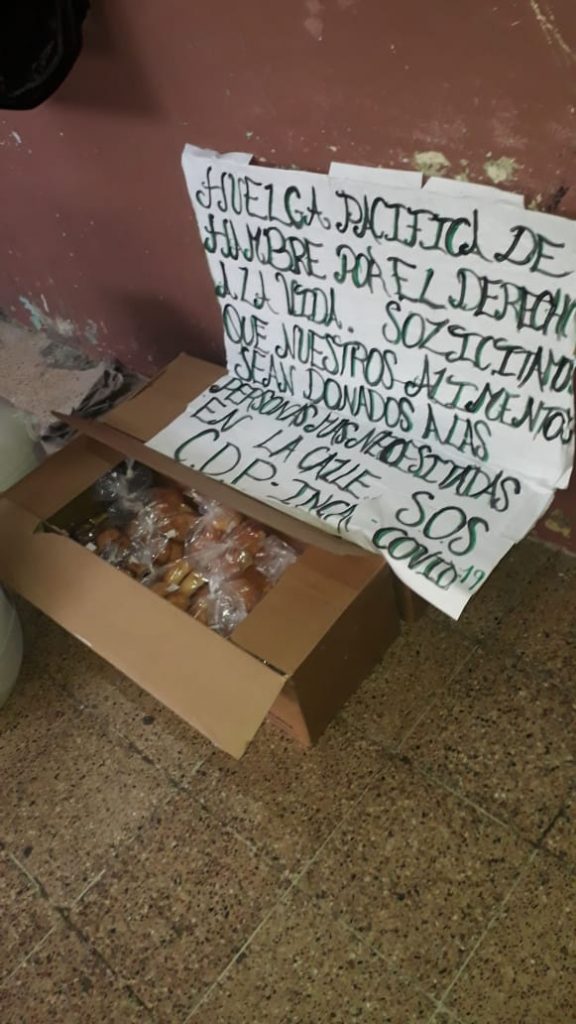 HUELGA PACIFICA DE
HAMBRE POR EL DERECHO
A LA VIDA. SOLICITAMOS
QUE NUESTROS ALIMENTOS
SEAN DONADOS A LAS
PERSONAS MAS NECESITADAS
EN LA CALLE SOS
C.D.P-INCA-COVID-19